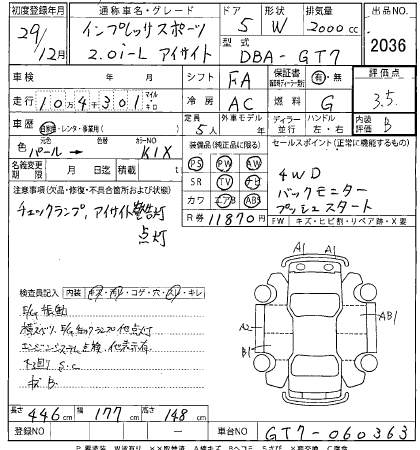 初度登録年月 通称車名・グレード ドア 形状 排気量 出品NO.
29/12月 インプレッサスポーツ 2.0i-L アイサイト 5 W 2000cc 2036
型式 DBA-GT7
車検 年 月 シフト FA 保証書 有・無 評価点
走行 10万4千301 マイル キロ 冷房 AC 燃料 G 3.5
車歴 自家用・レンタ・事業用( ) 定員 5人 外車モデル 年 ディーラー 並行 ハンドル 左・右 内装評価 B
色 元色 パール→ カラーNO K1X 装備品(純正品に限る) セールスポイント(正常に機能するもの)
名義変更期限 月 日迄 積載 t PS PW AW
SR TV ナビ
カワ エアB ABS
R券 11870円
4WD
バックモニター
プッシュスタート
注意事項(欠品・修復・不具合箇所および状態)
チェックランプ、アイサイト警告灯
点灯
FW キズ・ヒビ割・リペア跡・X要
検査員記入 内装 キズ・汚レ・コゲ・穴・スレ・キレ
E/g振動
横スベリ、E/gチェックランプ他点灯
エンジンシステム点検、他表示有
下廻り S.C
キズB
A1 A1
A2
B1
AB1
長さ 446cm 幅 177cm 高さ 148cm
登録NO 車台NO GT7-060363